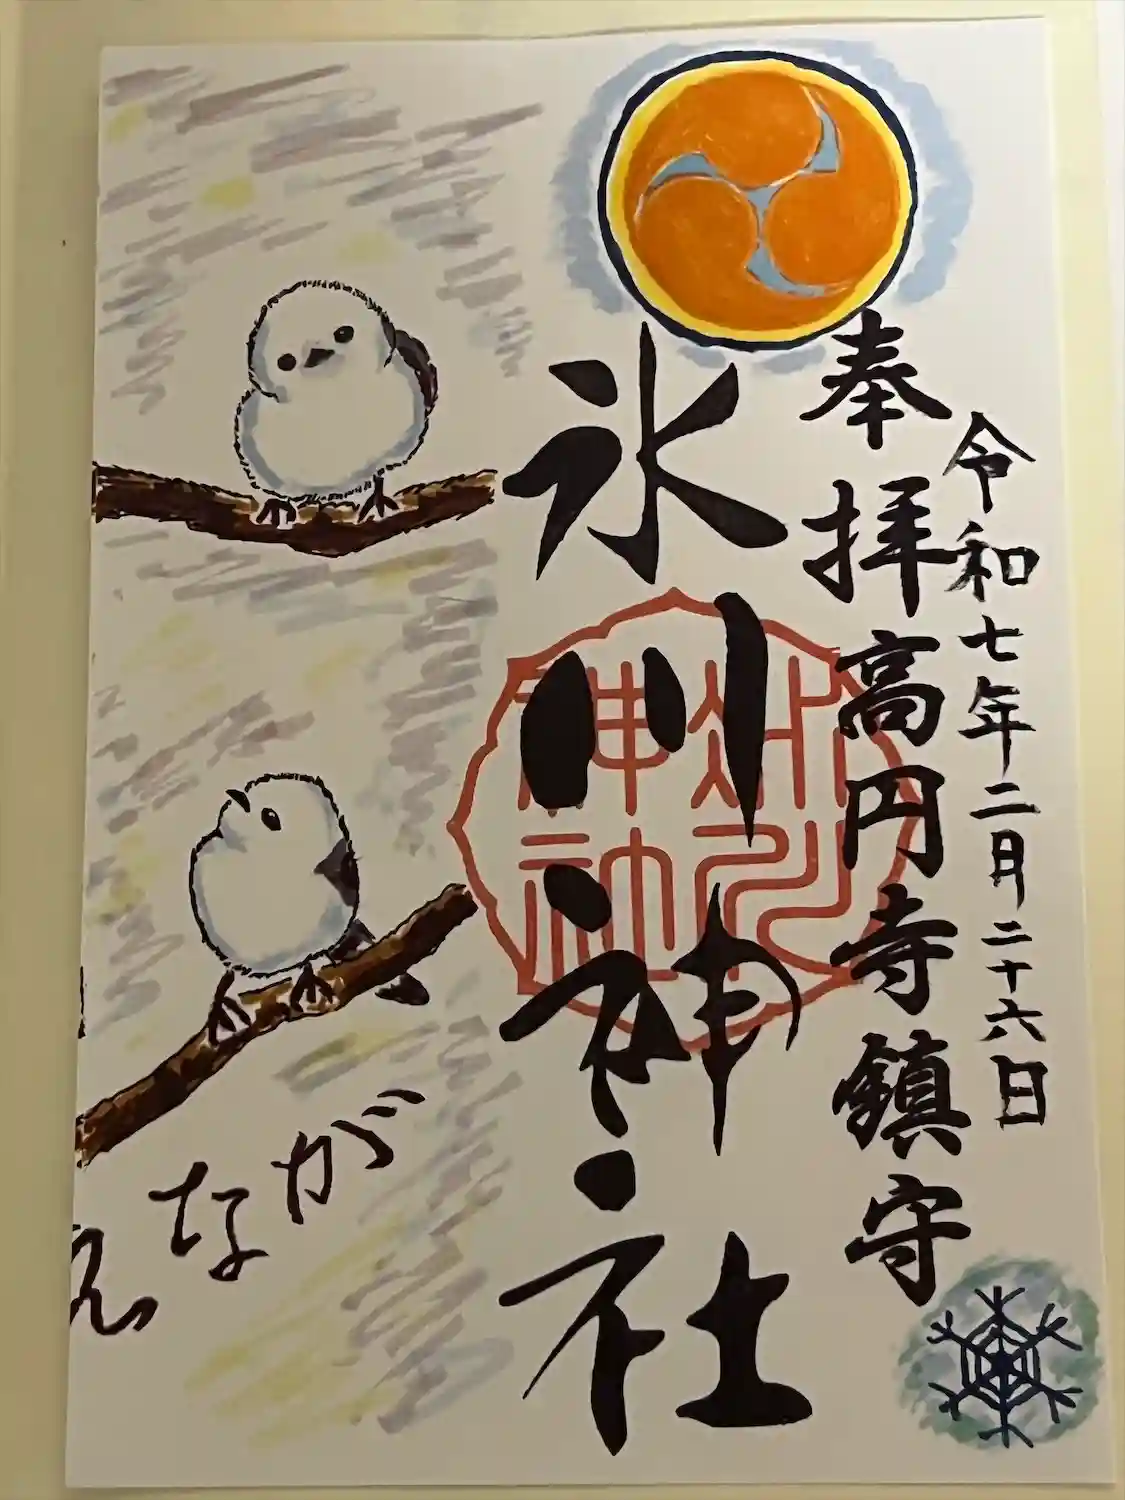 令和七年二月二十六日
奉拝高円寺鎮守
氷川神社
氷川
神社
えなが